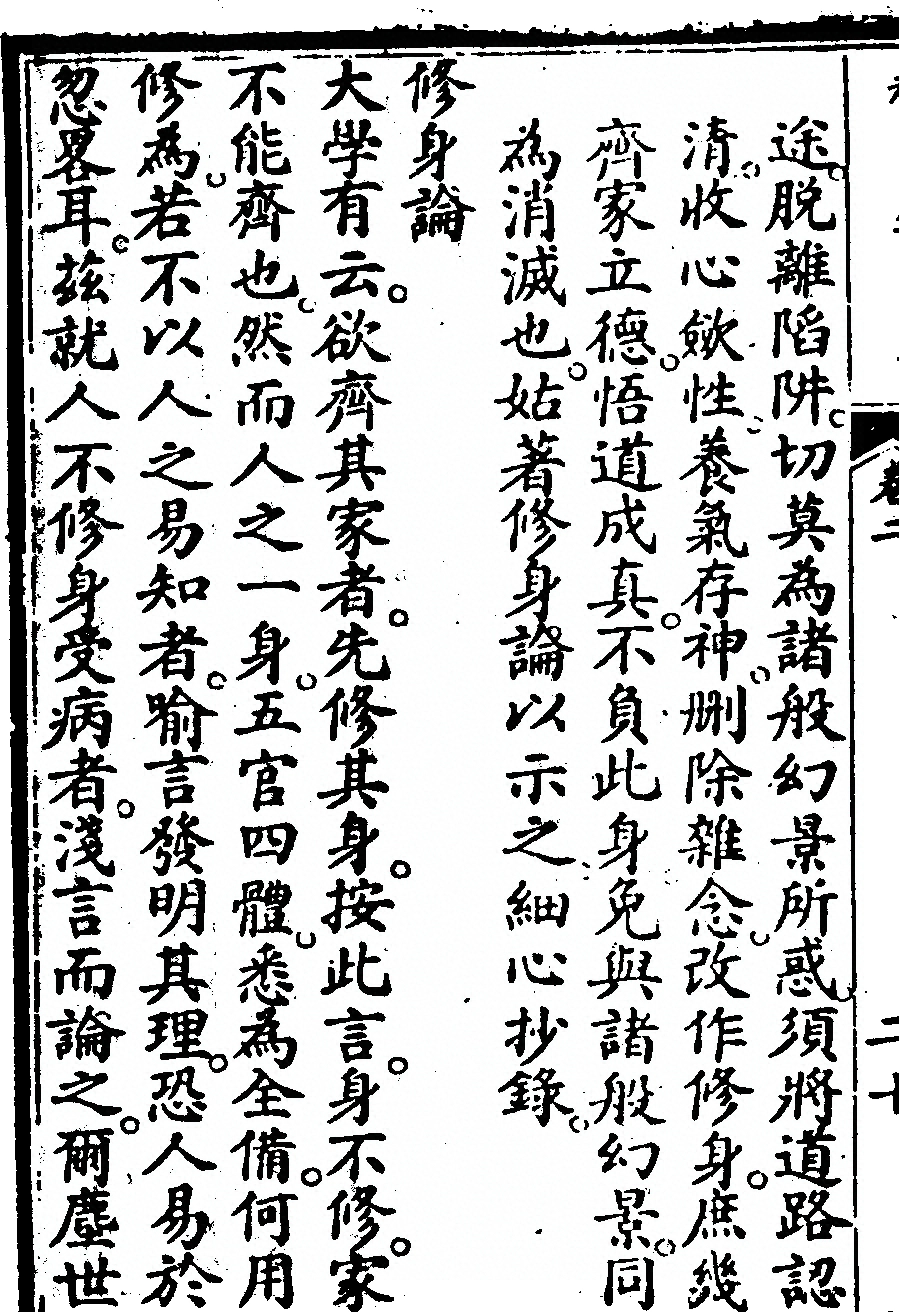 卷二
二十
途。脫離陷阱。切莫為諸般幻景所惑。須將道路認
清。收心斂性。養氣存神。刪除雜念。改作修身。庶幾
齊家立德。悟道成真。不負此身免與諸般幻景。同
為消滅也。姑著修身論以示之細心抄錄。
修身論
大學有云。欲齊其家者。先修其身。按此言。身不修。家
不能齊也。然而人之一身。五官四體。悉為全備。何用
修為。若不以人之易知者。喻言發明其理。恐人易於
忽畧耳。茲就人不修身受病者。淺言而論之。爾塵世